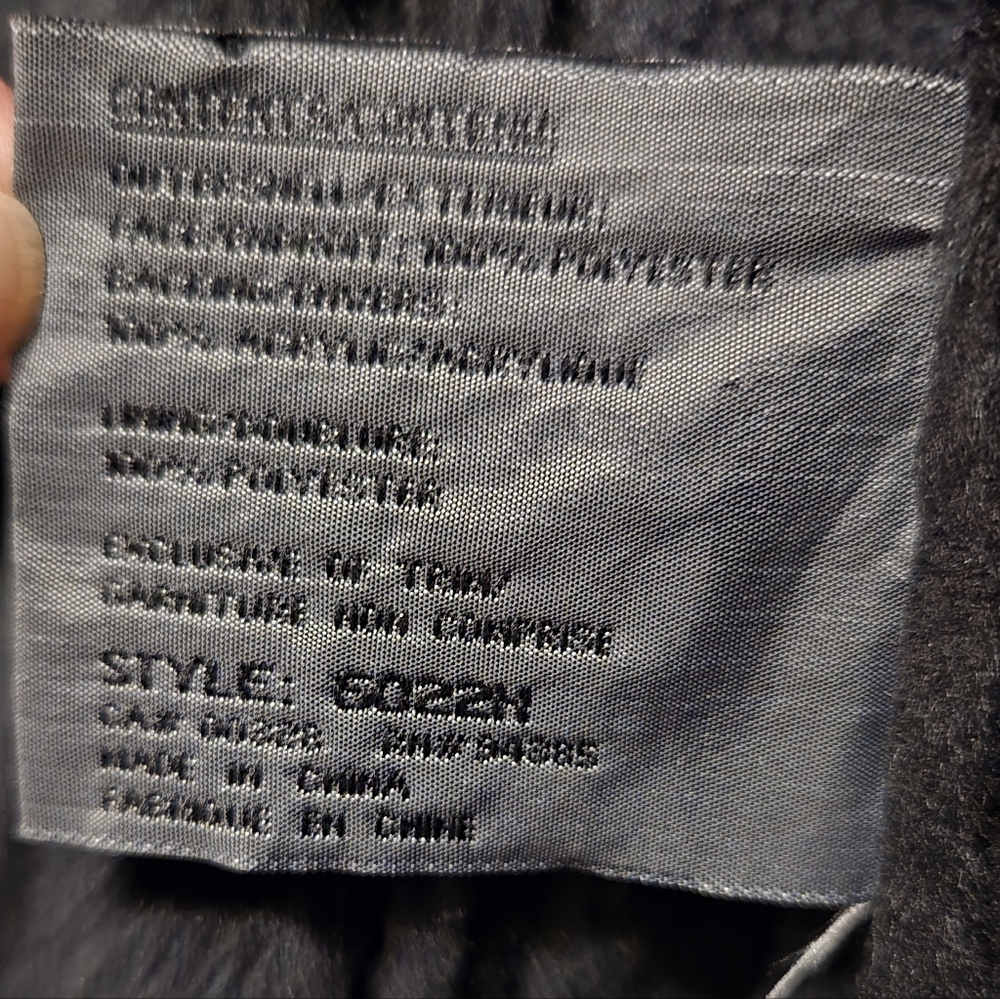 CONTENTS/CONTENU
OUTER SHELL/EXTERIEUR:
FACE/ENDROIT: 100% POLYESTER
BACKING/ENVERS:
100% ACRYLIC/ACRYLIQUE
LINING/DOUBLURE:
100% POLYESTER
EXCLUSIVE OF TRIM/
GARNITURE NON COMPRISE
STYLE: 6022N
CA# 00228
MADE IN CHINA
FABRIQUE EN CHINE